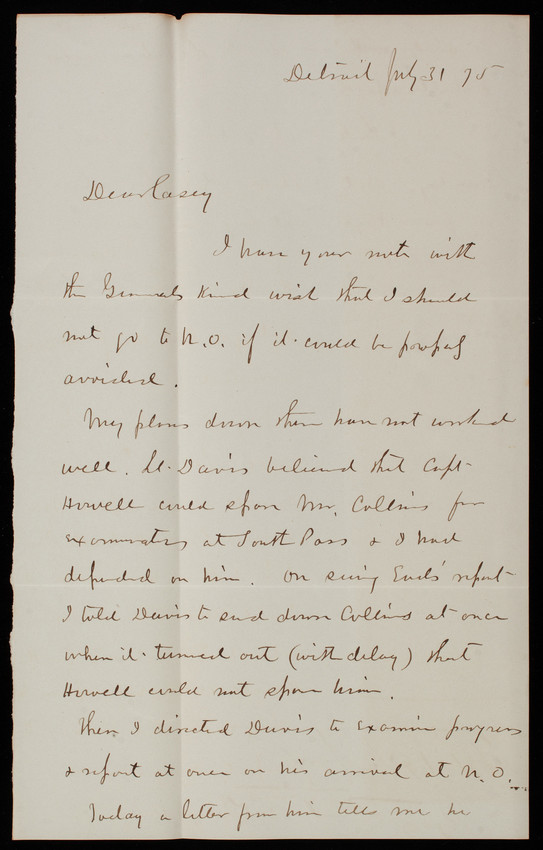 Detroit July 31 75
Dear Casey
I have your note with
the Generals kind wish that I should
not go to N.O. if it could be properly
avoided.
My plans down there have not worked
well. Lt. Davis believed that Capt.
Howell could spare Mr. Collins for
examinations at South Pass & I had
depended on him. On seeing Eads' report
I told Davis to send down Collins at once
when it turned out (with delay) that
Howell could not spare him.
Then I directed Davis to examine progress
& report at once on his arrival at N.O.
Today a letter from him tells me he